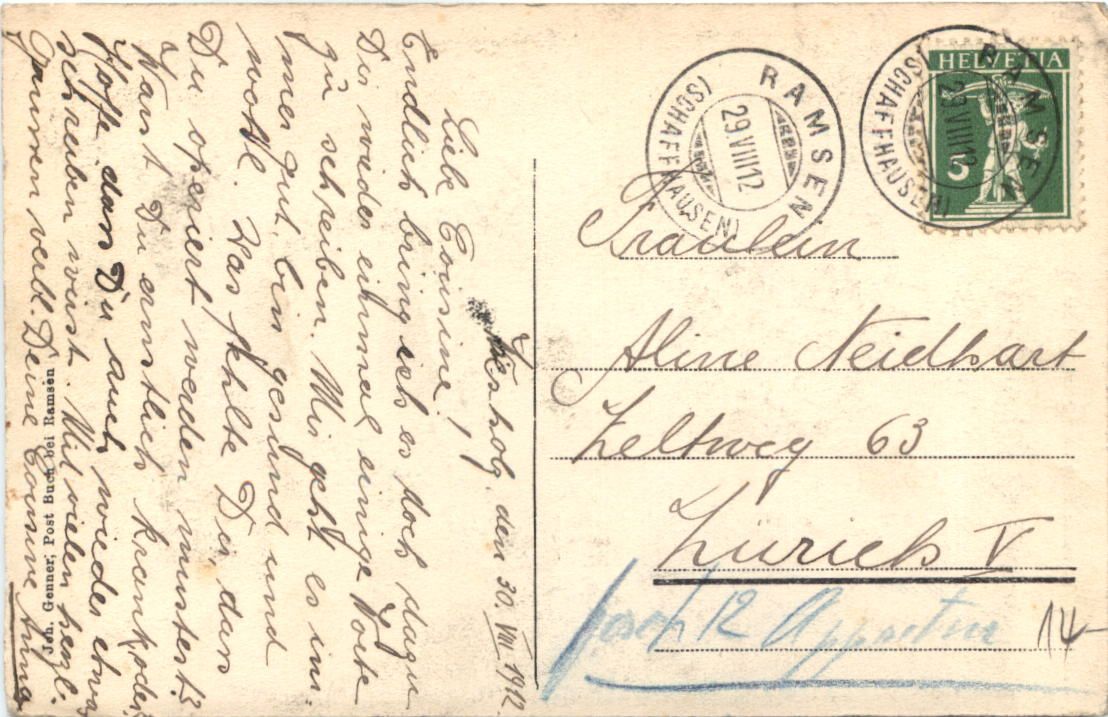 Wiesholz, den 30. VIII. 1912.
Liebe Cousine!
Endlich bring ich es doch dazu
Dir wieder einmal einige Worte
zu schreiben. Mir geht es im-
mer gut, bin gesund und
wohl. Was fehlte Dir, dass
Du operiert werden musstest?
Warst Du ernstlich krank, oder
Hoffe, dass Du auch wieder etwas
schreiben wirst. Mit vielen herzl.
Grüssen verbl. Deine Cousine Anna
Joh. Genner, Post Buch bei Ramsen
RAMSEN
(SCHAFFHAUSEN)
29 VIII 12
RAMSEN
(SCHAFFHAUSEN)
29 VIII 12
HELVETIA
5
Fräulein
Aline Neidhart
Zeltweg 63
Zürich V
12
14-